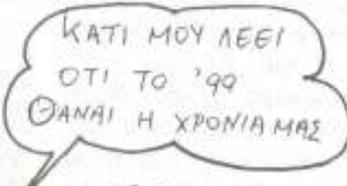 ΚΑΤΙ ΜΟΥ ΛΕΕΙ
ΟΤΙ ΤΟ '99
ΘΑΝΑΙ Η ΧΡΟΝΙΑ ΜΑΣ